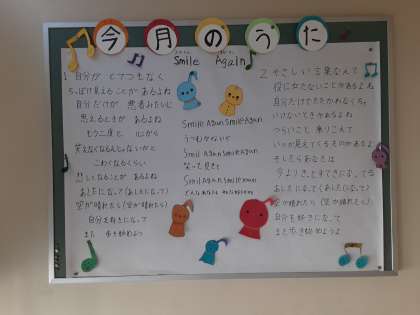 今月のうた
Smile Again
1. 自分が とてつもなく
ちっぽけ見えることがあるよね
自分だけが 悪者みたいに
思えるときが あるよね
もう二度と 心から
笑えなくなるんじゃないかと
こわくなるくらい
しくなることが あるよね
あしたになって(あしたになって)
空が晴れたら(空が晴れたら)
自分を好きになって
また 歩き始めよう
Smile Again Smile Again
うつむかないで
Smile Again Smile Again
なって見せて
Smile Again Smile Again
2. やさしい言葉なんて
役に立たないことがあるよね
自分だけでたたかわなくちゃ
いけないときがあるよね
つらいこと 乗りこえて
いつか見えてくるものがあるよ
そしたらあなたは
今よりきっとすてきになってる
あしたになって(あしたになって)
空が晴れたら(空が晴れたら)
自分を好きになって
また歩き始めようよ